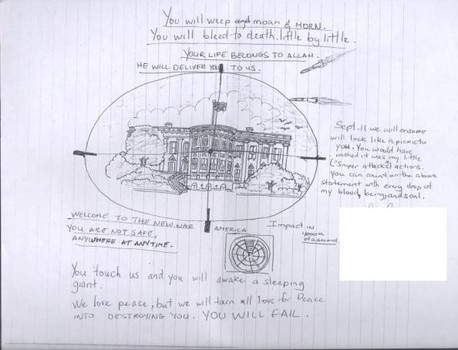 You will weep and moan & MORN.
You will bleed to death. little by little.
YOUR LIFE BELONGS TO ALLAH.
HE WILL DELIVER YOU TO US.
Sept. 11 we will
will look like a picnic to
you. You would have
wished it was my little
("Sniper attacks") actions.
you can count on the above
statement with every drop of
my blood, being and soul.
WELCOME TO THE NEW WAR
YOU ARE NOT SAFE,
ANYWHERE AT ANYTIME.
AMERICA
Impact in
You touch us and you will awake a sleeping
giant.
We love peace, but we will turn all love for Peace
INTO DESTROYING YOU. YOU WILL FAIL.